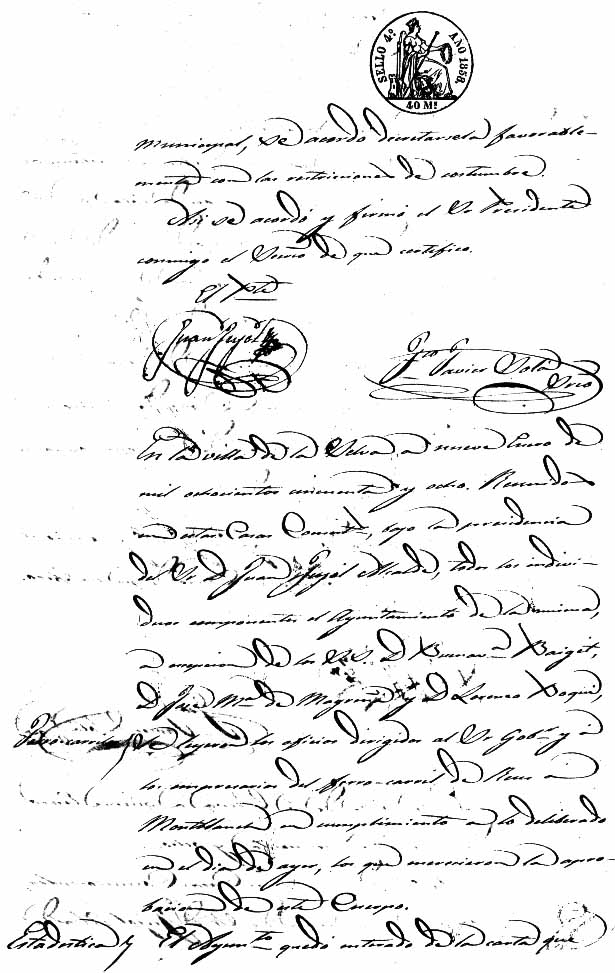 SELLO 4.º AÑO 1858.
40 Ms
municipal, se acordó decretarsela favorable-
mente con las restricciones de costumbre.
Asi se acordó y firmó el Sr Presidente
conmigo el Srio de que certifico.
El Pte
Juan Pujol
Fco Javier Solá
Srio
En la villa de la Selva a nueve Enero de
mil ochocientos cincuenta y ocho. Reunidos
en estas Casas Consist, bajo la presidencia
del Sr D Juan Pujol Alcalde, todos los indivi-
duos componentes el Ayuntamiento de la misma,
a escepcion de los S.S. D Buenav.a Baiget,
D José M.a de Magriñá y D Lorenzo
Ferro-carril Se leyeron los oficios dirigidos al Sr Gobr y a
los empresarios del ferro-carril de Reus a
Montblanch en cumplimiento a lo deliberado
en el dia de ayer, los que merecieron la apro-
bacion de este Cuerpo.
Estadistica El Ayunto quedó enterado de la carta que